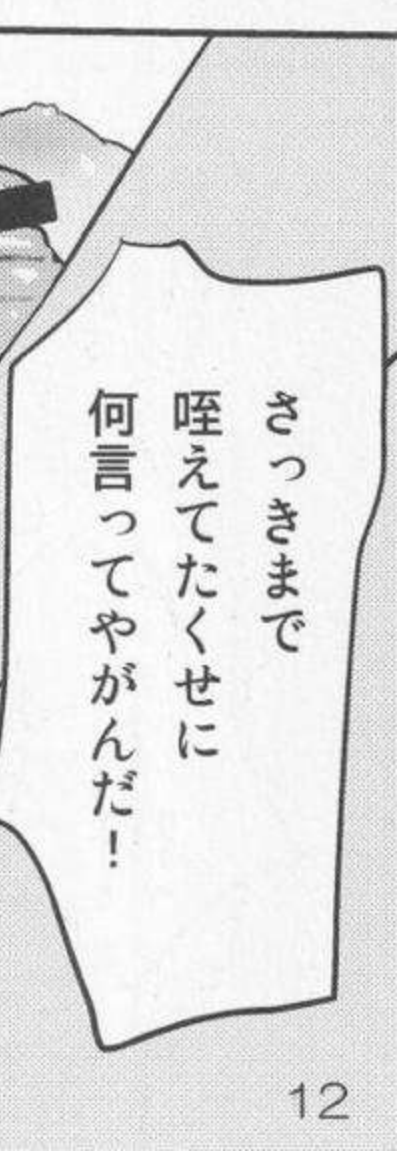 さっきまで
咥えてたくせに
何言ってやがんだ！
12